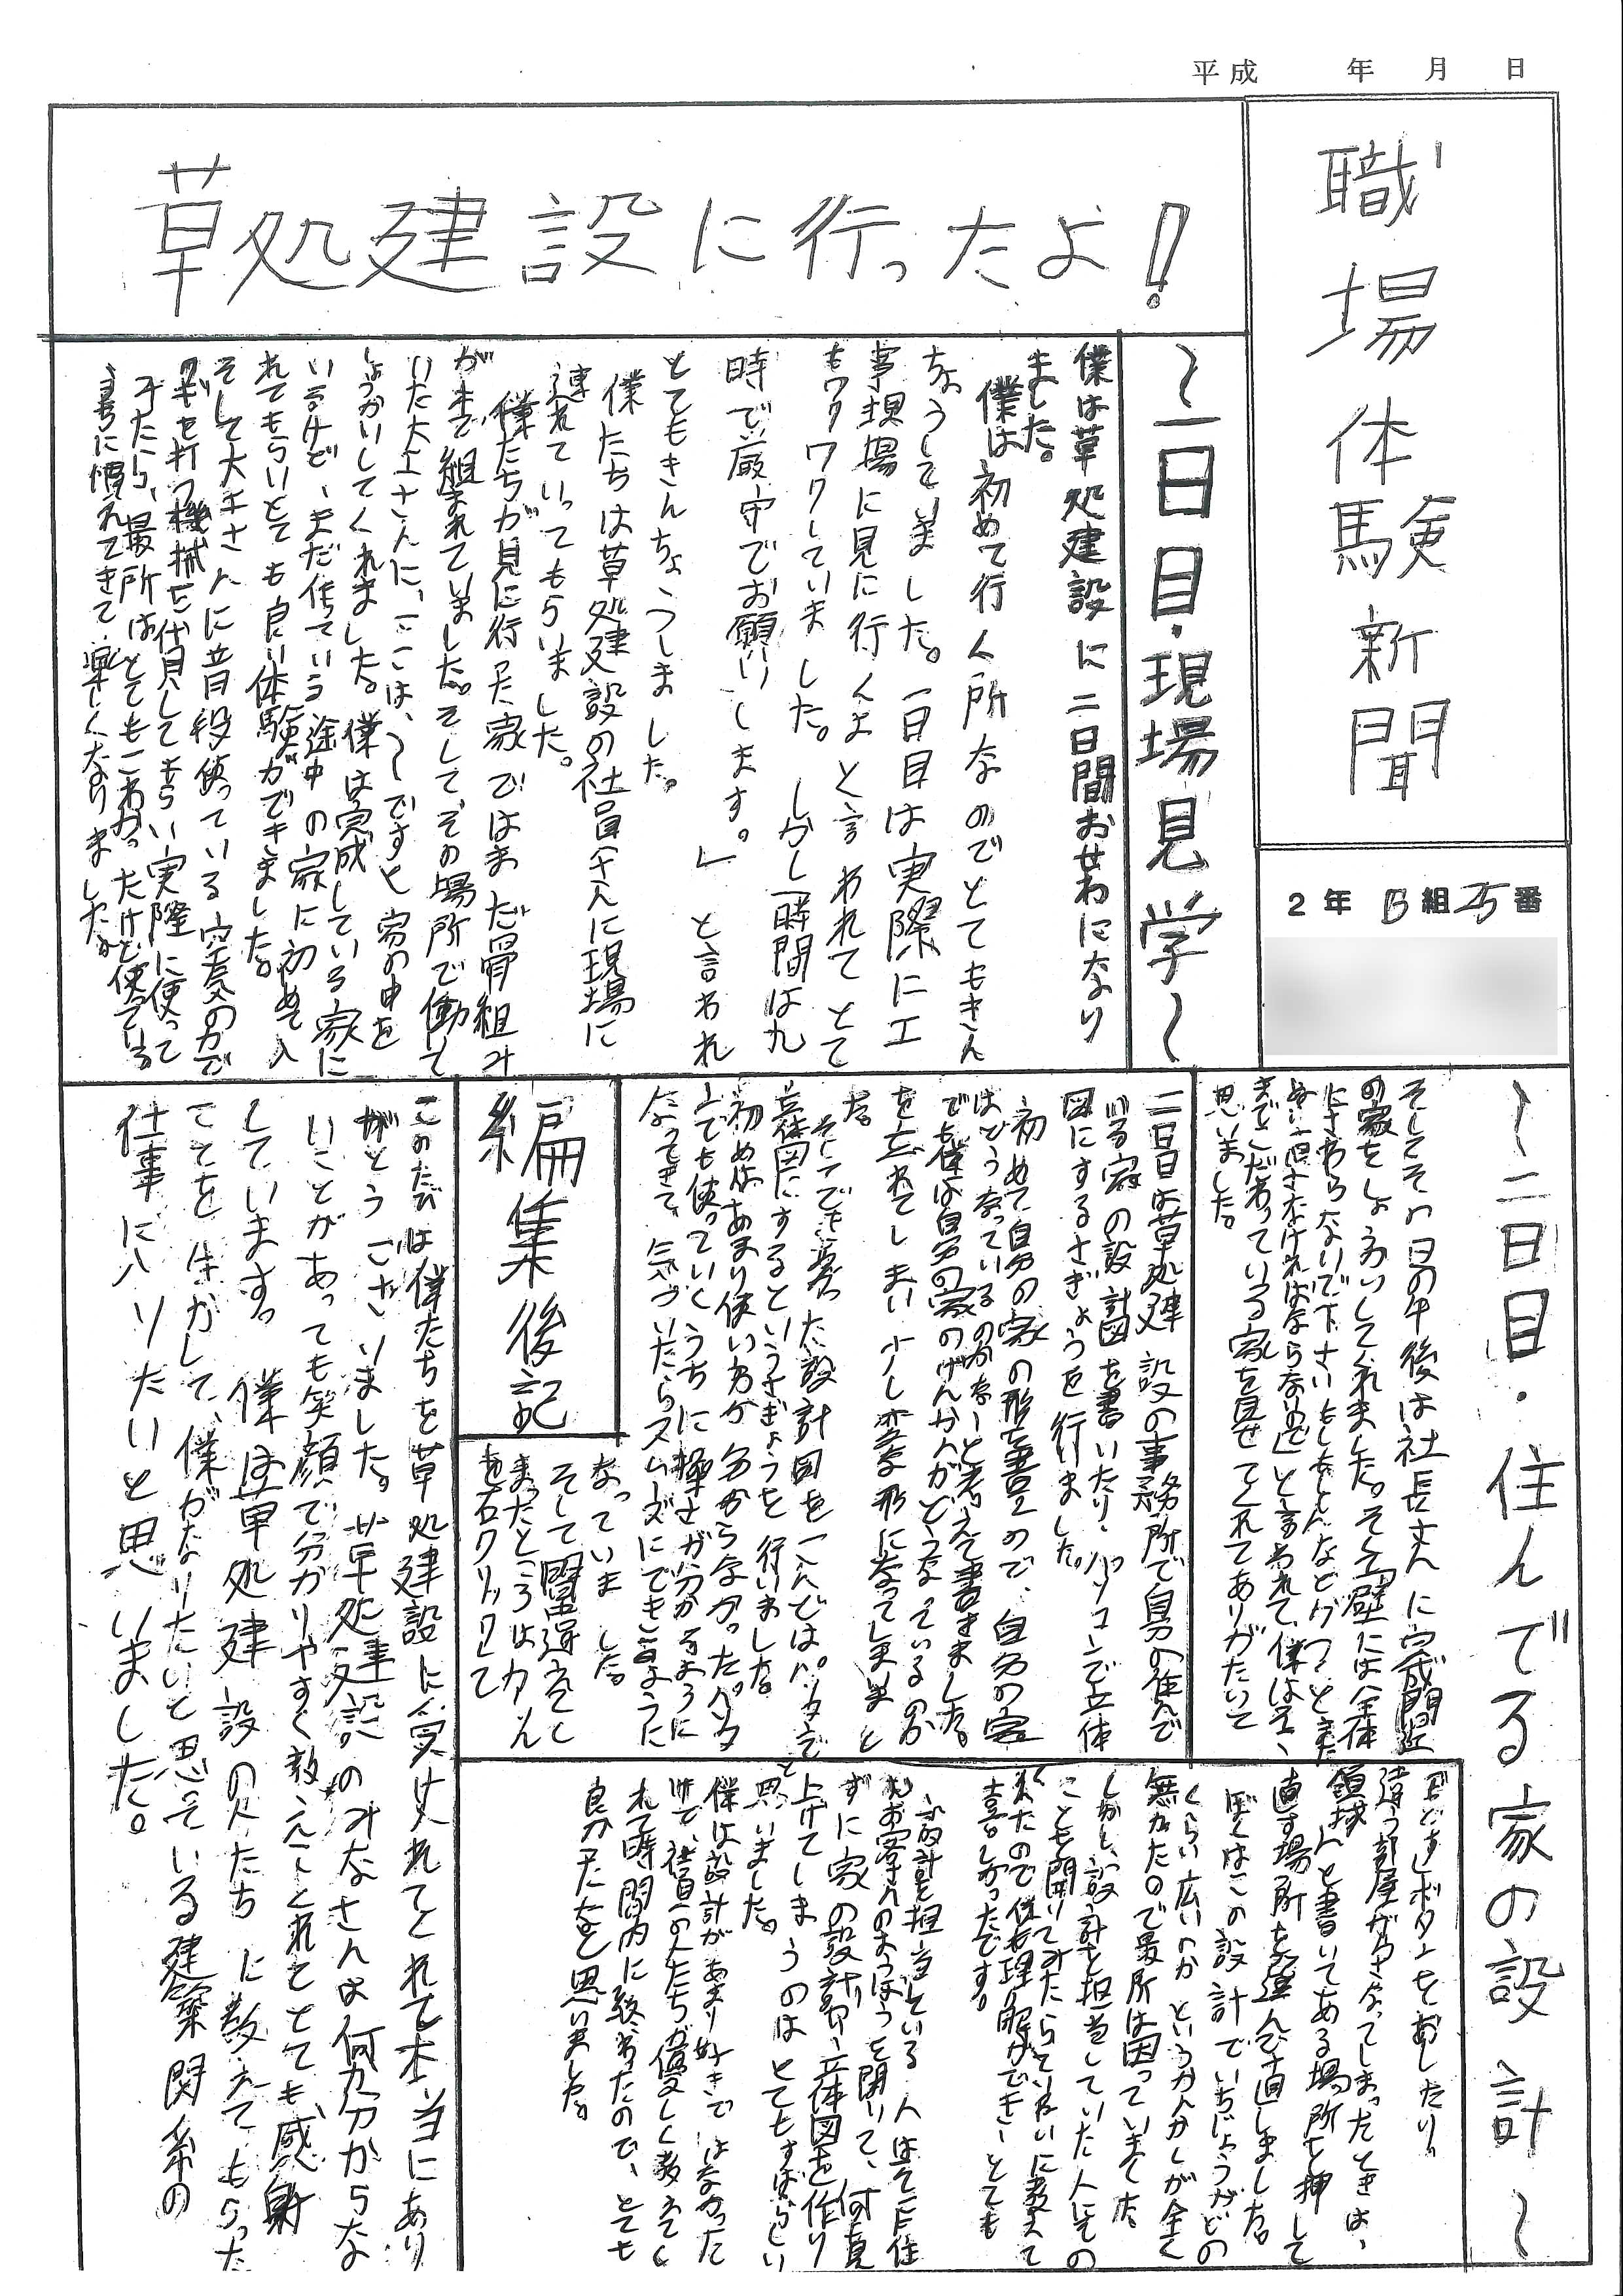 平成　年　月　日
職場体験新聞
2年B組25番
草処建設に行ったよ!
〜一日目・現場見学〜
僕は草処建設に二日間おせわになり
ました。
僕は初めて行く所なのでとてもきん
ちょうしていました。一日目は実際に工
事現場に見に行くよと言われてとて
もワクワクしていました。しかし「時間は九
時で厳守でお願いします。」と言われ
とてもきんちょうしました。
僕たちは草処建設の社員さんに現場に
連れていってもらいました。
僕たちが見に行った家ではまだ骨組み
がまで組まれていました。そしてその場所で働いて
いた大工さんに、ここは、〜ですと家の中を
しょうかいしてくれました。僕は完成している家に
いるけど、まだ作っている途中の家に初めて入
れてもらいとても良い体験ができました。
そして大工さんに普段使っている空気の力で
クギを打つ機械を代見してもらい実際に使って
みたら、最所はとてもこわかったけど使っている
うちに慣れてきて楽しくなりました。
〜二日目・住んでる家の設計〜
そしてその日の午後は社長さんに完成間近
の家をしょうかいしてくれました。そして「壁には全体
にさわらないで下さい。もしもどんなとグツとまた
ぬい直さなければならないので」と言われて、僕はそこ
までこだわっている家を見せてくれてありがたいて
思いました。
二日目は草処建設の事務所で自分の住んで
いる家の設計図を書いたり、パソコンで立体
図にするさぎょうを行いました。
初めて自分の家の形を書くので、自分の家
はどうなっているのかなーと考えて書きました。
でも僕は自分の家のげんかんがどうなっているのか
を忘れてしまい少し変な形になってしまいまし
た。
そしてでき upった設計図を一人ではパソコンで
立体図にするというさぎょうを行いました。
初めはあまり使い方が分からなかったパソコ
ンでも使っていくうちに操さが分かるように
なってきて、気づいたらスムーズにできるように
なっていました。
そして間違えてし
まったところはかん
を右クリックして
『もどす』ボタンをおしたり、
違う部屋がかさなってしまったときは、
領域と書いてある場所を押して
直す場所を選んで直しました。
ぼくはこの設計でいちじょうがどの
くらい広いのかというかんかくが全く
無かったので最所は困っていました。
しかし、設計を担当していた人にその
ことを聞いてみたらていねいに教えて
くれたので僕も理解ができーとても
喜しかったです。
設計を担当している人は全て住
むお客さんのようぼうを聞いて、何も見
ずに家の設計図〜立体図を作り
上げてしまうのはとてもすばらしい
と思いました。
僕は設計があまり好きではなかった
けど、社員の人たちが優しく教えてく
れて時間内に終わったので、とても
良かったなと思いました。
編集後記
このたびは僕たちを草処建設に受け入れてくれて本当にあり
がとうございました。草処建設のみなさんは何か分からな
いことがあっても笑顔で分かりやすく教えてくれてとても感謝
しています。僕は草処建設の人たちに教えてもらった
ことを生かして、僕がなりたいと思っている建築関係の
仕事に入りたいと思いました。